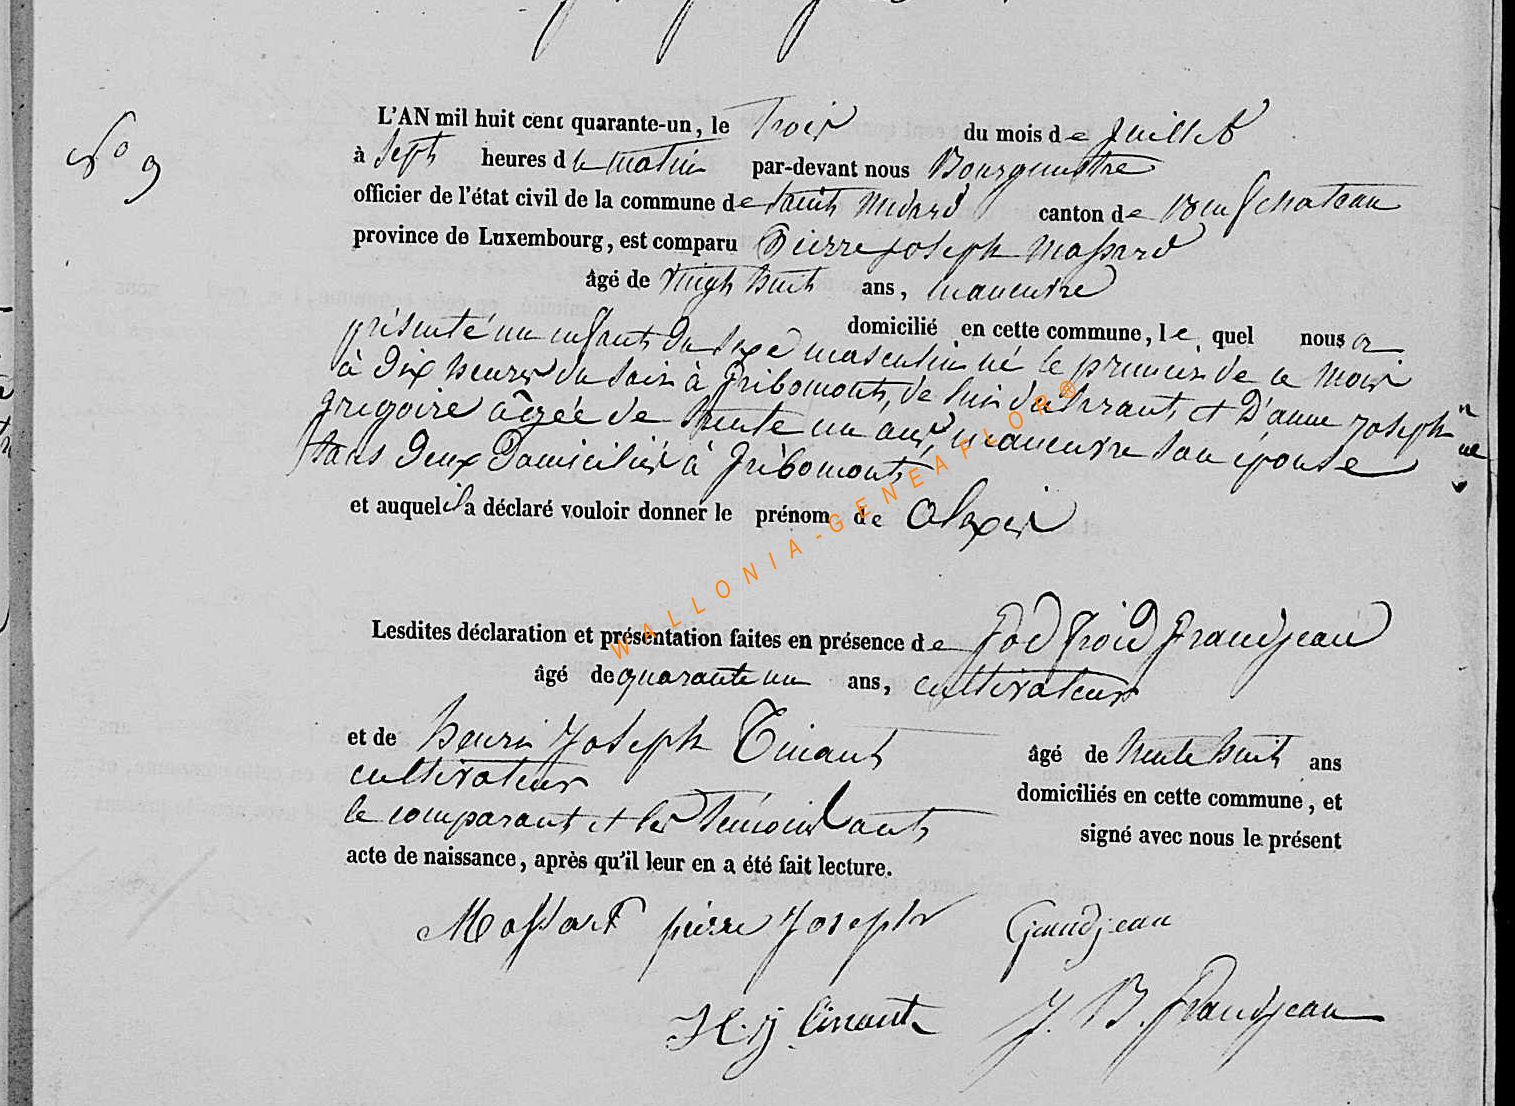 N° 9
L'AN mil huit cent quarante-un, le Trois du mois de Juillet
à Sept heures du matin par-devant nous Bourguemestre
officier de l'état civil de la commune de Saint Médard canton de Neufchateau
province de Luxembourg, est comparu Pierre joseph Massard
âgé de vingt huit ans, manœuvre
domicilié en cette commune, le quel nous a
présenté un enfant du sexe masculin né le premier de ce mois
à dix heures du soir à Gribomont, de lui déclarant et D'anne joseph
grégoire âgée de trente un ans, manœuvre son épouse
tous deux Domiciliés à Gribomont
et auquel il a déclaré vouloir donner le prénom de Alexis
Lesdites déclaration et présentation faites en présence de God froid Grandjean
âgé de quarante un ans, cultivateur
et de henri Joseph Tinant âgé de trente huit ans
cultivateur domiciliés en cette commune, et
le comparant et les témoins ont signé avec nous le présent
acte de naissance, après qu'il leur en a été fait lecture.
Massart pierre Joseph Grandjean
H. j Tinant J. B. Grandjean
WALLONIA-GENEAFLOR®